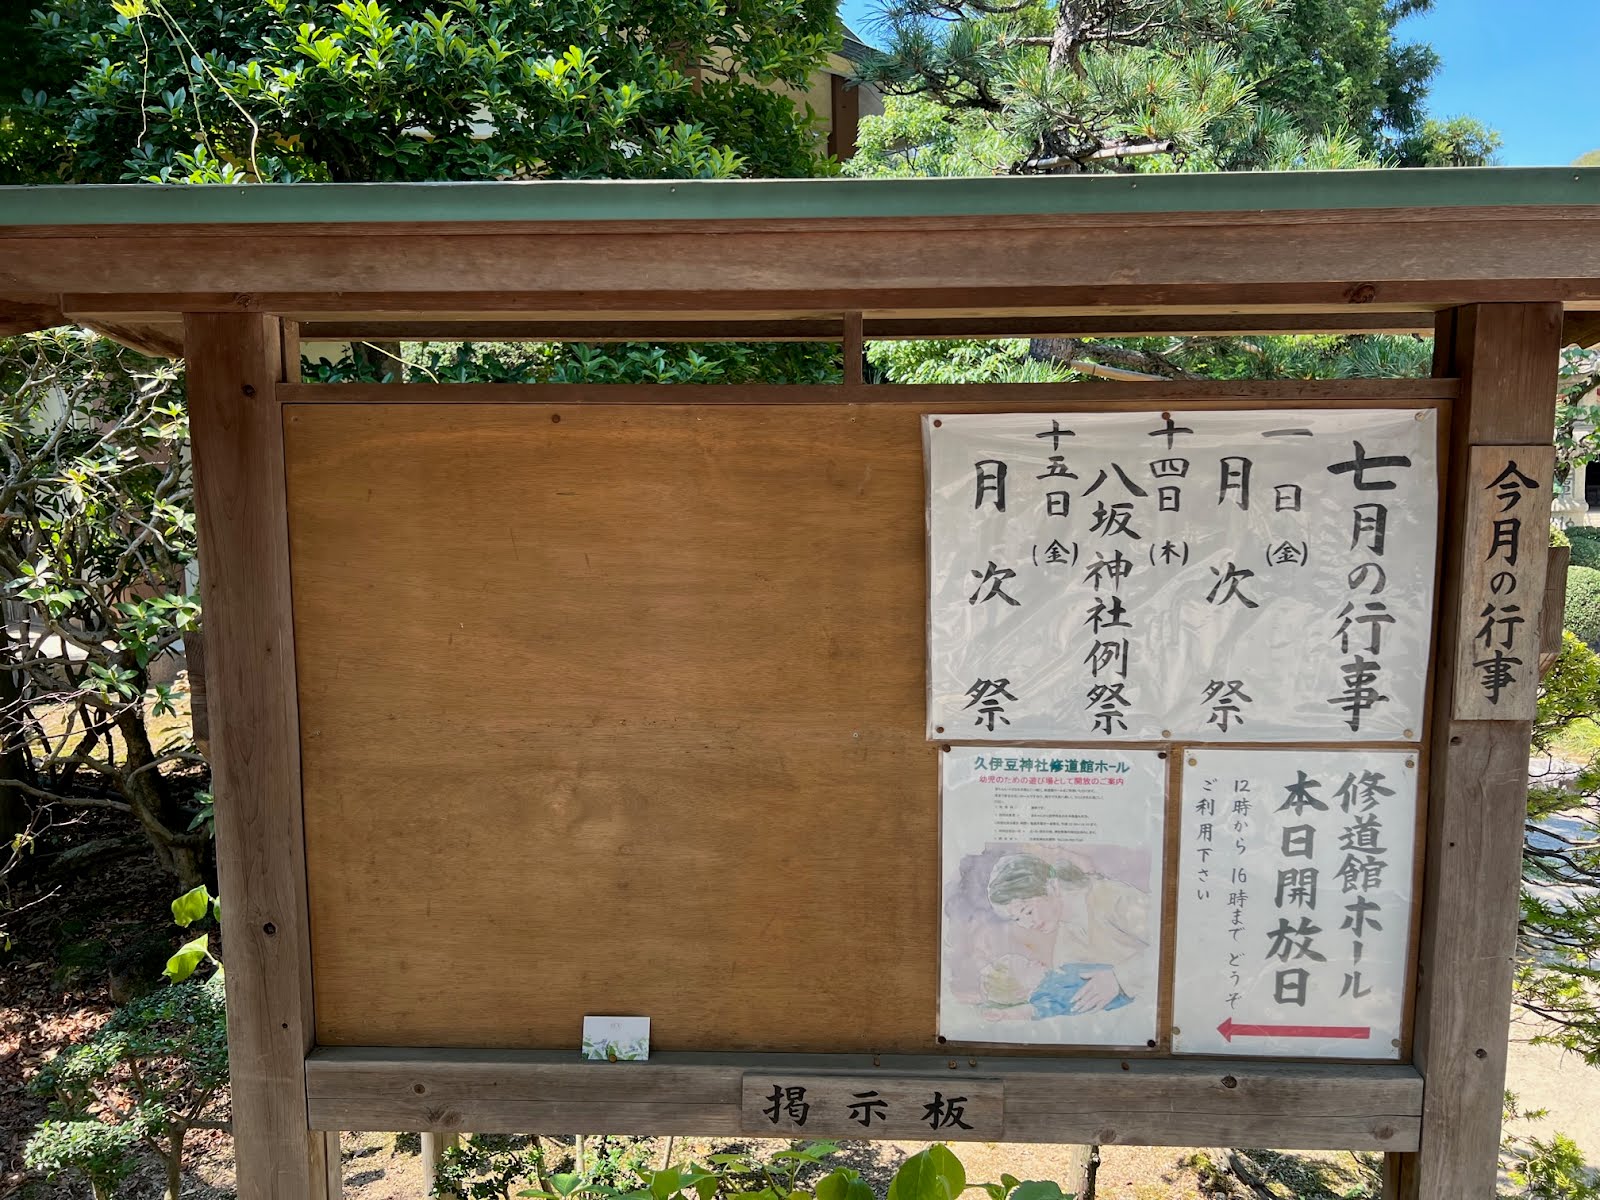 今月の行事
七月の行事
一日(金)
月次祭
十四日(木)
八坂神社例祭
十五日(金)
月次祭
久伊豆神社修道館ホール
幼児のための遊び場として開放のご案内
修道館ホール
本日開放日
12時から16時まで どうぞ
ご利用下さい
掲示板